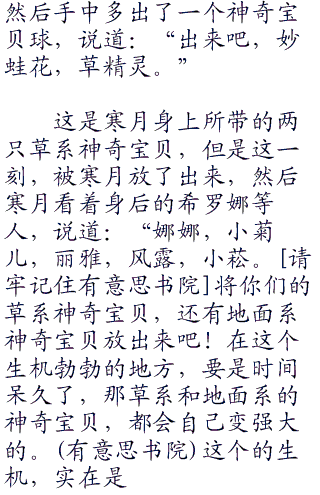 然后手中多出了一个神奇宝
贝球，说道：“出来吧，妙
蛙花，草精灵。”
这是寒月身上所带的两
只草系神奇宝贝，但是这一
刻，被寒月放了出来，然后
寒月看着身后的希罗娜等
人，说道：“娜娜，小菊
儿，丽雅，风露，小菘。[请
牢记住有意思书院]将你们的
草系神奇宝贝，还有地面系
神奇宝贝放出来吧！在这个
生机勃勃的地方，要是时间
呆久了，那草系和地面系的
神奇宝贝，都会自己变强大
的。(有意思书院)这个的生
机，实在是